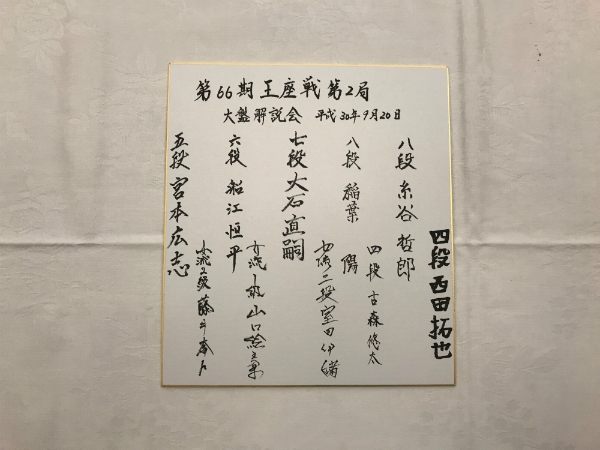 第66期王座戦第2局
大盤解説会 平成30年9月20日
四段 西田拓也
八段 糸谷哲郎
四段 古森悠太
八段 稲葉陽
女流二段 室田伊緒
七段 大石直嗣
女流 山口絵美菜
六段 船江恒平
女流 藤井奈々
五段 宮本広志